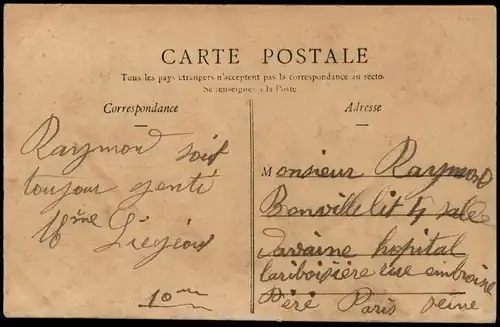 CARTE POSTALE
Tous les pays étrangers n'acceptent pas la correspondance au recto.
Se renseigner à la Poste
Correspondance
Adresse
Raymond soit
toujour genti
Monsieur Raymond
Bonville lit 4 salle
davaine hopital
lariboisière rue embroise
Péré Paris seine
10me